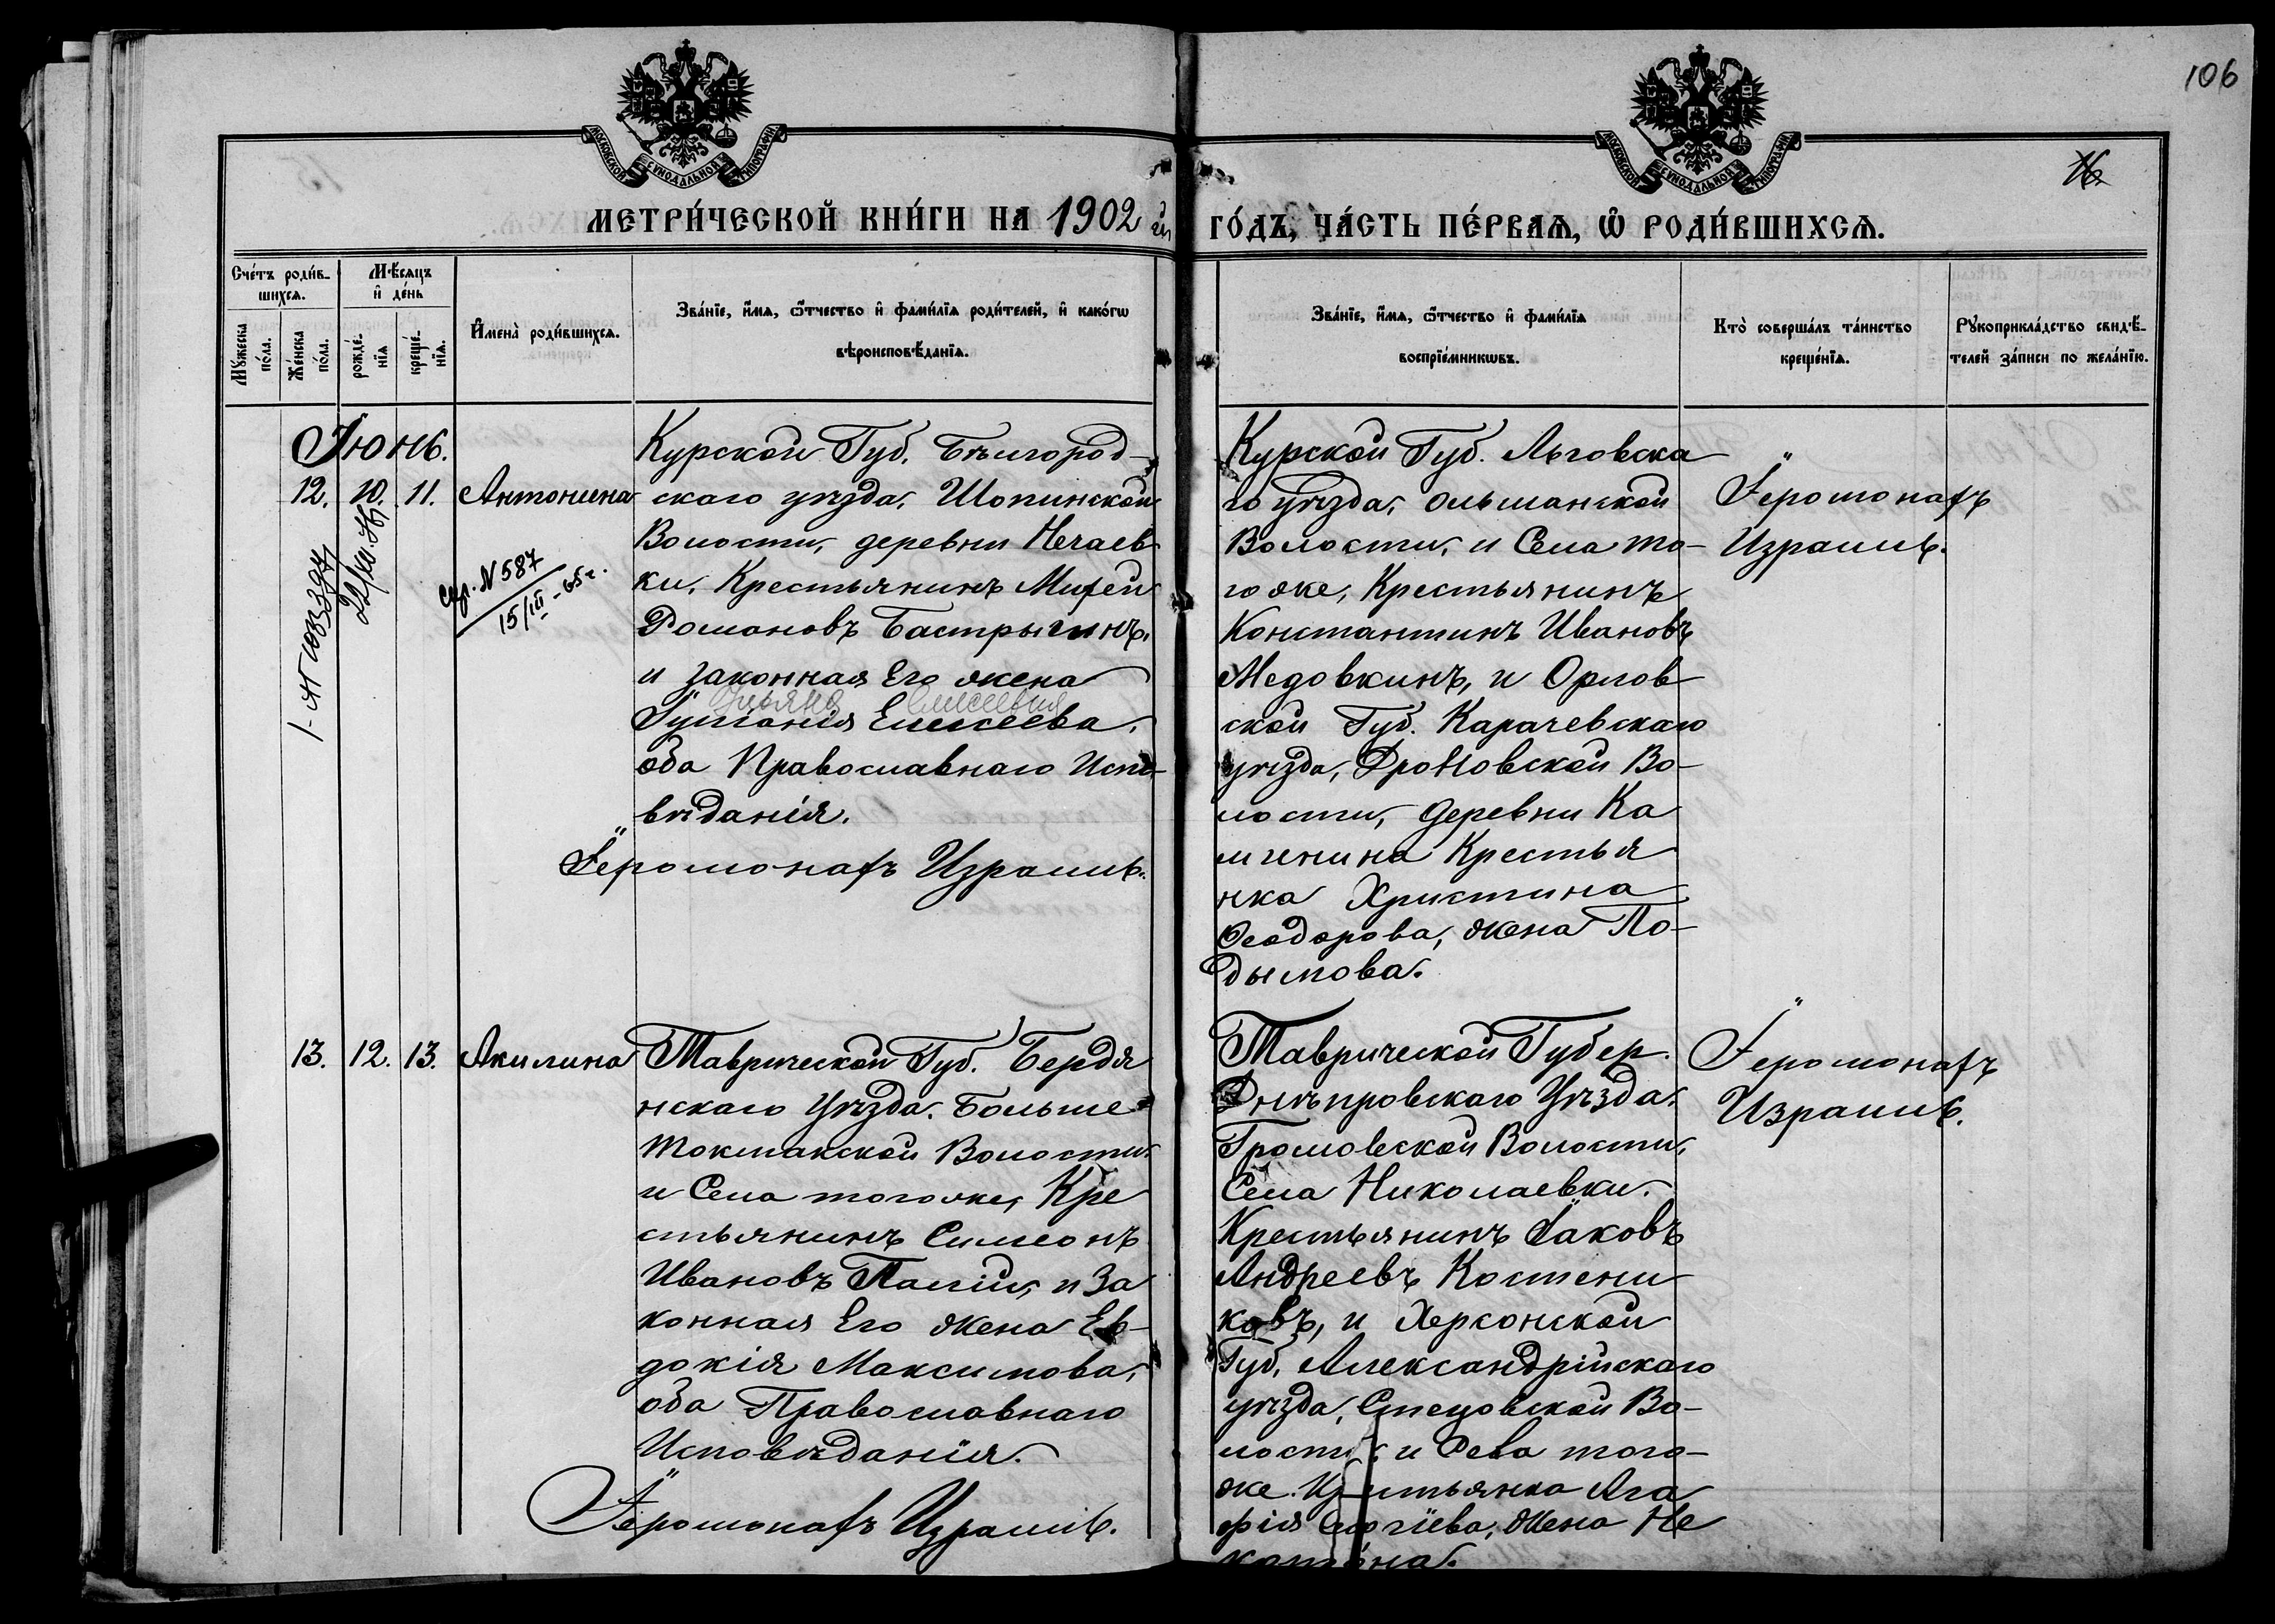 106
16.
МОСКОВСКОЙ СУНОДАЛЬНОЙ ТИПОГРАФІИ
МОСКОВСКОЙ СУНОДАЛЬНОЙ ТИПОГРАФІИ
МЕТРИ́ЧЕСКОЙ КНИ́ГИ НА 1902 й
ГО́ДЪ, ЧА́СТЬ ПЕ́РВАѦ, Ѡ҆ РОДИ́ВШИХСѦ.
Сче́тъ роди́в-
шихсѧ.
Мꙋ́жеска
по́ла.
Же́нска
по́ла.
Мѣ́сѧцъ
и҆ де́нь
рожде́-
нїѧ
креще́-
нїѧ.
И҆мена̀ роди́вшихсѧ.
Зва́нїе, и҆́мѧ, ѻ҆́тчество и҆ фами́лїѧ роди́телей, и҆ како́гѡ
вѣроисповѣ́данїѧ.
Зва́нїе, и҆́мѧ, ѻ҆́тчество и҆ фами́лїѧ
воспрїе́мникѡвъ.
Кто̀ соверша́лъ та́инство
креще́нїѧ.
Рꙋкоприкла́дство свидѣ́-
телей за́писи по жела́нїю.
Іюнь.
12. 10. 11. Антонина
спр. N 587
15/III - 65 г.
Курской Губ. Бѣлгород-
скаго уѣзда, Шопинской
Волости, деревни Нечаев
ки, Крестьянинъ Михей
Романовъ Бастрыгинъ,
и законная Его жена
Ульяна Елисеевна
Іуліанія Елисеева,
оба Православнаго Испо-
вѣданія.
Іеромонахъ Израиль.
Курской Губ. Льговска
го уѣзда, Ольшанской
Волости, и Села то-
гоже, Крестьянинъ
Константинъ Ивановъ
Медовкинъ, и Орлов
ской Губ. Карачевскаго
уѣзда, Дроновской Во-
лости, деревни Ка
мченина Крестья
нка Христина
Ѳеодорова, жена По-
дымова.
Іеромонахъ
Израиль.
13. 12. 13. Акилина
Таврической Губ. Бердя
нскаго Уѣзда. Больше
Токмакской Волости
и Села тогоже, Кре
стьянинъ Симеонъ
Ивановъ Палій, и За
конная Его жена Ев-
докія Максимова,
оба Православнаго
Исповѣданія.
Іеромонахъ Израиль.
Таврической Губер.
Днѣпровскаго Уѣзда.
Громовской Волости,
Села Николаевки.
Крестьянинъ Іаковъ
Андреевъ Костени
ковъ, и Херсонской
Губ. Александрійскаго
уѣзда, Стецовской Во-
лости и Села того-
же. Крестьянка Ага
фія Сергіева, жена Не
Іеромонахъ
Израиль.